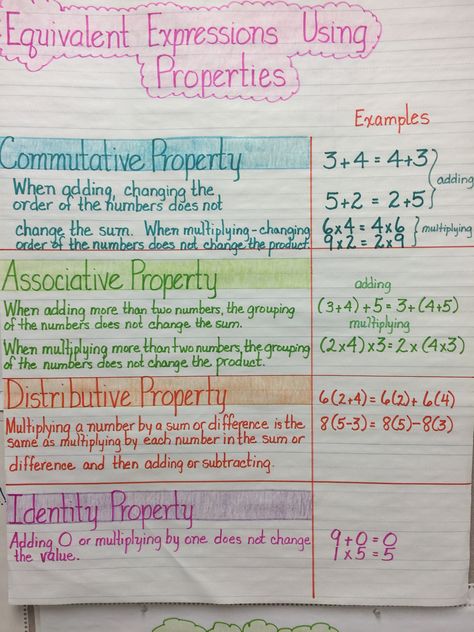 Equivalent Expressions Using
Properties
Examples
Commutative Property
When adding, changing the
order of the numbers does not
change the sum. When multiplying - changing
order of the numbers does not change the product
3+4 = 4+3
adding
5+2 = 2+5
6x4 = 4x6
multiplying
9x2 = 2x9
Associative Property
When adding more than two numbers, the grouping
of the numbers does not change the sum.
When multiplying more than two numbers, the grouping
of the numbers does not change the product.
adding
(3+4)+5 = 3+(4+5)
multiplying
(2x4)x3 = 2x(4x3)
Distributive Property
Multiplying a number by a sum or difference is the
same as multiplying by each number in the sum or
difference and then adding or subtracting.
6(2+4) = 6(2)+6(4)
8(5-3) = 8(5)-8(3)
Identity Property
Adding 0 or multiplying by one does not change
the value.
9+0=0
1x5=5